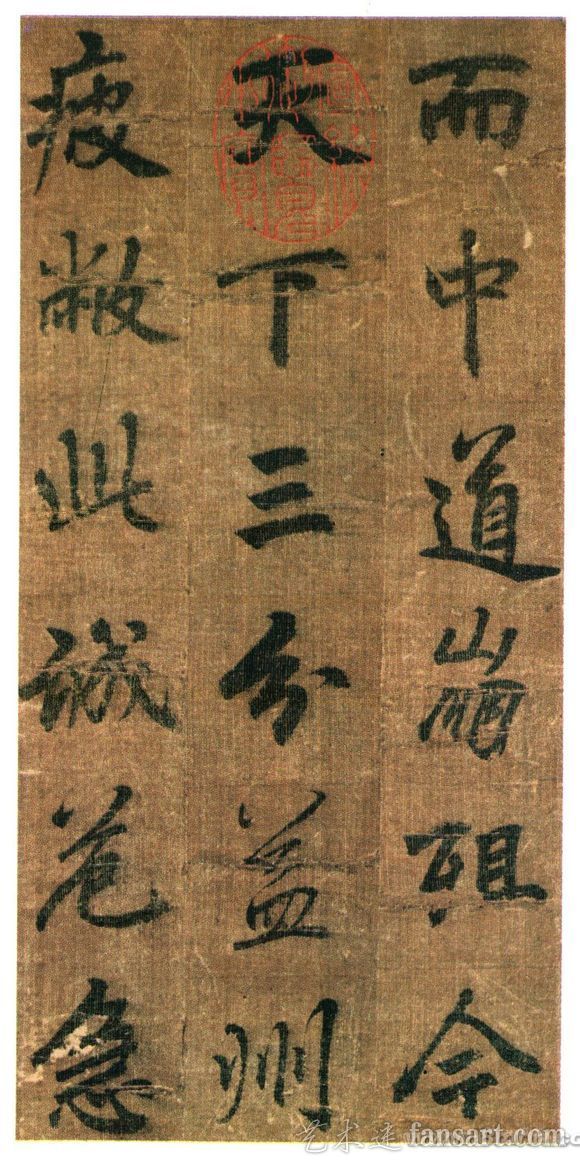 而中道崩殂今
天下三分益州
疲敝此誠危急
艺术迷 fansart.com